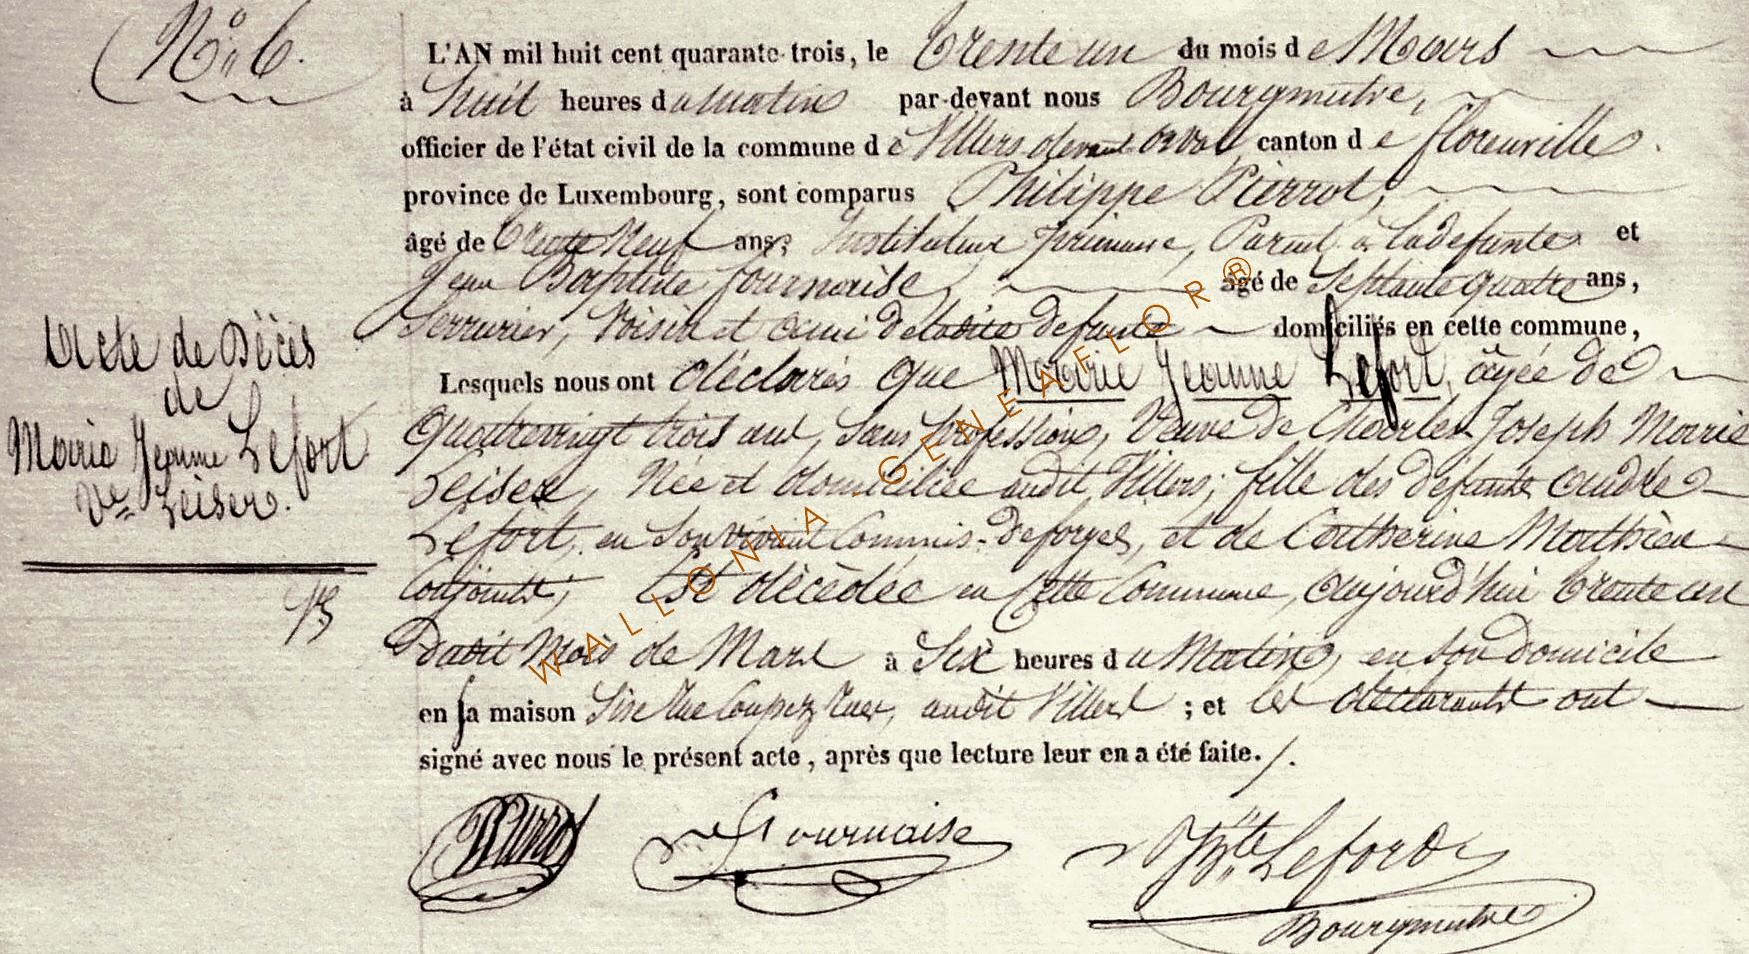 N° 6.
L'AN mil huit cent quarante-trois, le Trente un du mois de Mars
à huit heures du Matin par-devant nous Bourgmestre,
officier de l'état civil de la commune de Villers devant orval canton de florenville
province de Luxembourg, sont comparus Philippe Pierrot,
âgé de Trente Neuf ans, Instituteur primaire, Parent à la defunte et
Jean Baptiste fournaise, âgé de Septante quatre ans,
Serrurier, Voisin et ami de ladite defunte domiciliés en cette commune,
Lesquels nous ont déclarés que Marie Jeanne Lefort, âgée de
Quatrevingt trois ans, Sans profession, Veuve de Charles Joseph Marie
Leiser, Née et domiciliée audit Villers; fille des défunts andré
Lefort, en son vivant Commis-deforges, et de Catherine Mathieu
Conjoints; Est décédée en Cette Commune, aujourd'hui trente un
dudit Mois de Mars à Six heures du Matin, en son domicile
en sa maison Sise Rue Coupez Rues, audit Villers ; et les déclarants ont
signé avec nous le présent acte, après que lecture leur en a été faite./.
Acte de Décès
de
Marie Jeanne Lefort
Ve Leiser.
Pierrot
Fournaise
JBte Lefort
Bourgmestre
WALLONIA GENEAFLOR®